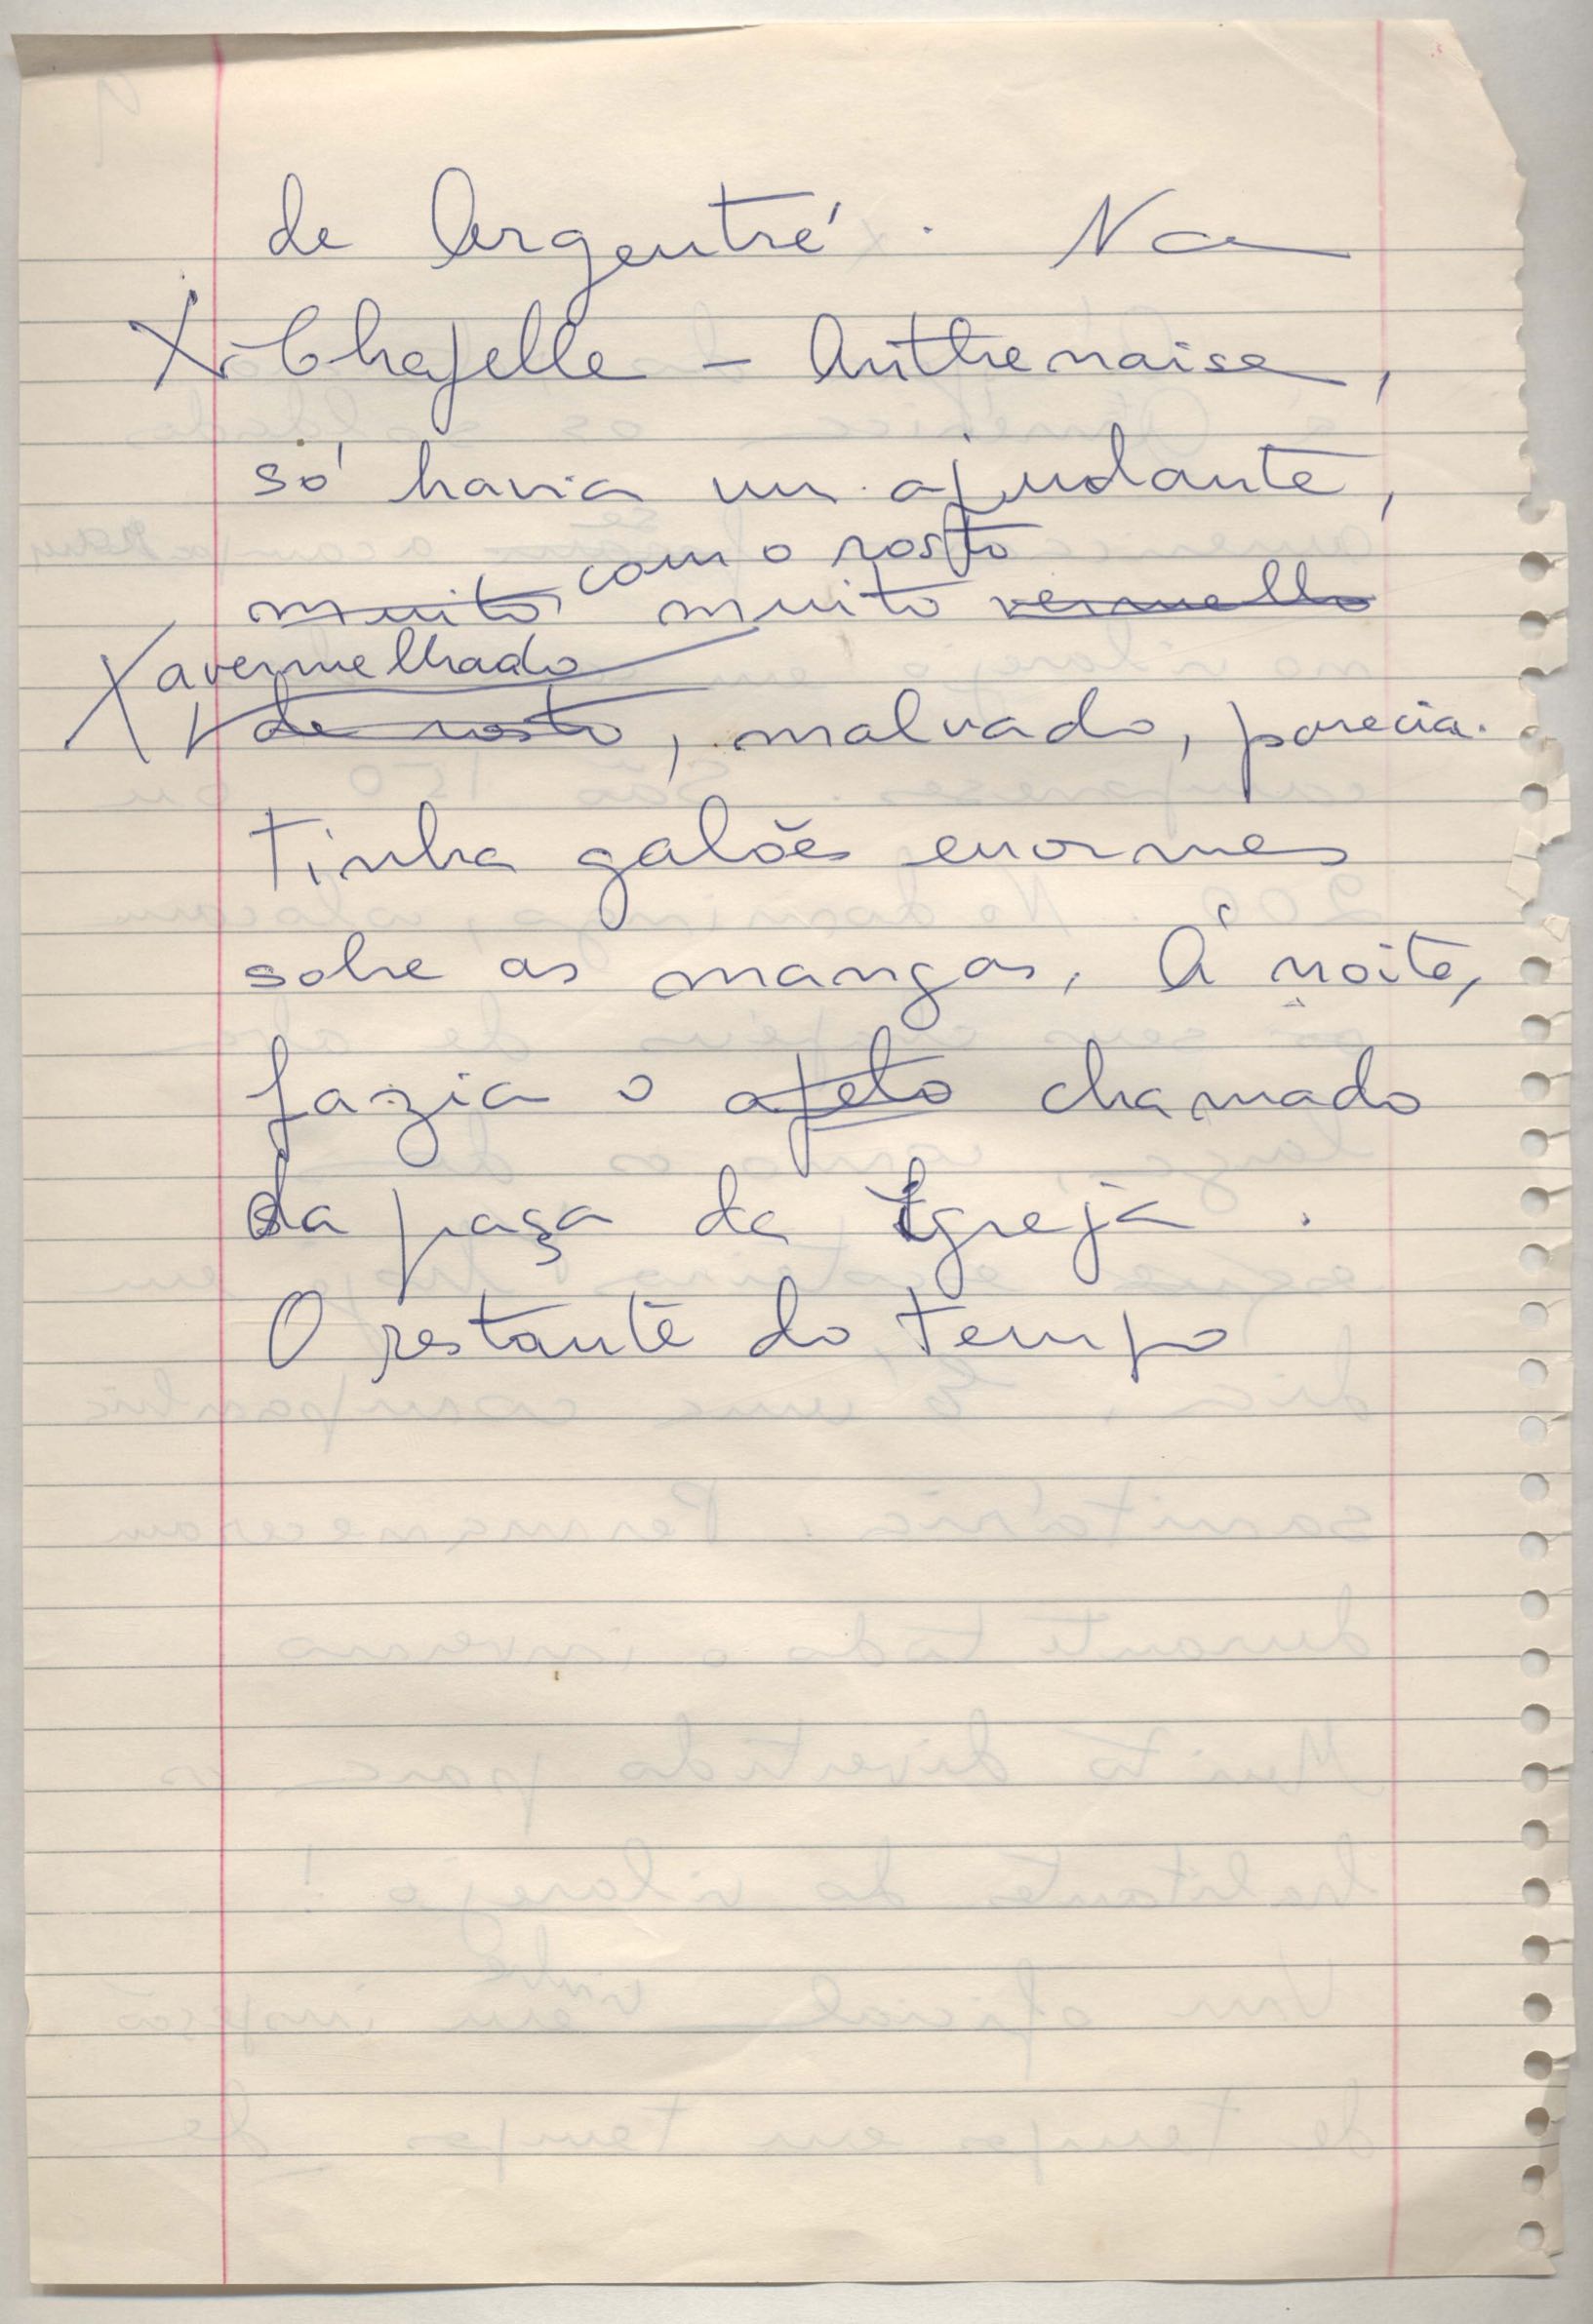 de Argentré. Na
X Chapelle - Anthenaise,
só havia um ajudante,
com o rosto
muito, muito vermelho
X avermelhado
de rosto, malvado, parecia.
Tinha galões enormes
sobre as mangas. À noite,
fazia o apelo chamado
da praça da Igreja.
O restante do tempo